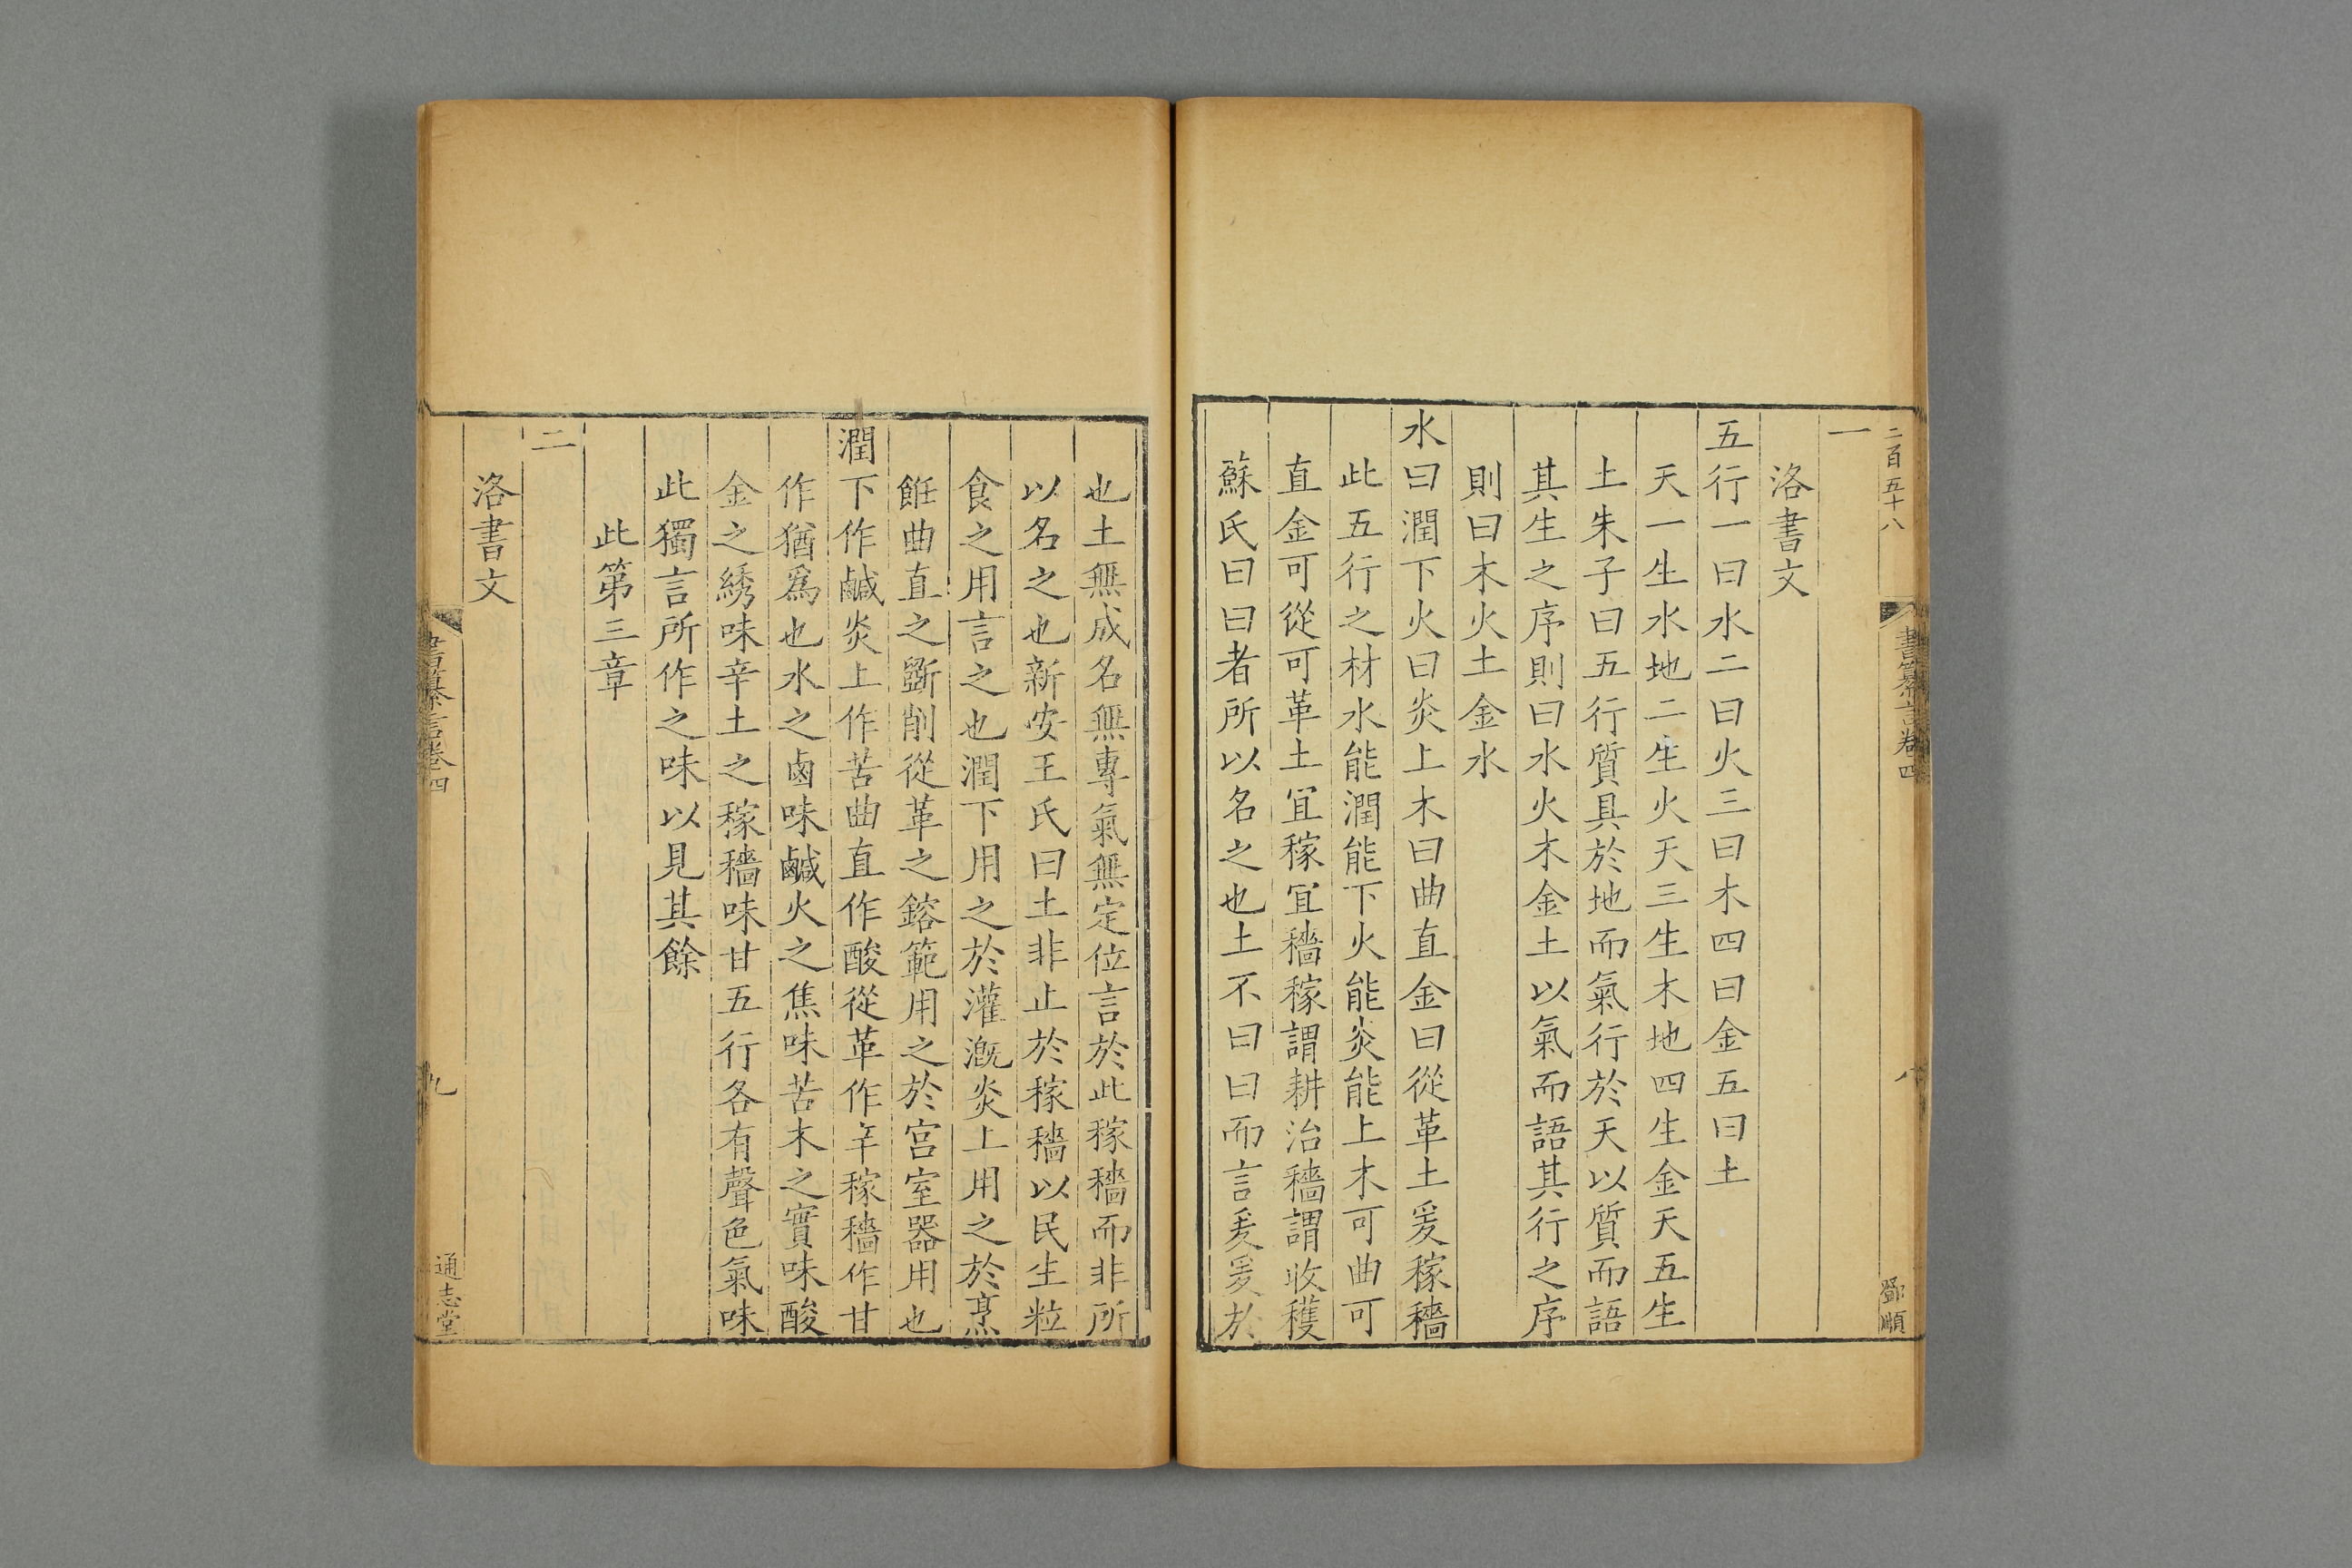 二百五十八
書纂言卷四
八
鄧順
一
洛書文
五行一曰水二曰火三曰木四曰金五曰土
天一生水地二生火天三生木地四生金天五生
土朱子曰五行質具於地而氣行於天以質而語
其生之序則曰水火木金土以氣而語其行之序
則曰木火土金水
水曰潤下火曰炎上木曰曲直金曰從革土爰稼穡
此五行之材水能潤能下火能炎能上木可曲可
直金可從可革土宜稼宜穡稼謂耕治穡謂收穫
蘇氏曰曰者所以名之也土不曰曰而言爰爰於
也土無成名無專氣無定位言於此稼穡而非所
以名之也新安王氏曰土非止於稼穡以民生粒
食之用言之也潤下用之於灌漑炎上用之於烹
飪曲直之斵削從革之鎔範用之於宫室器用也
潤下作鹹炎上作苦曲直作酸從革作辛稼穡作甘
作猶爲也水之鹵味鹹火之焦味苦木之實味酸
金之綉味辛土之稼穡味甘五行各有聲色氣味
此獨言所作之味以見其餘
此第三章
二
洛書文
書纂言卷四
九
通志堂